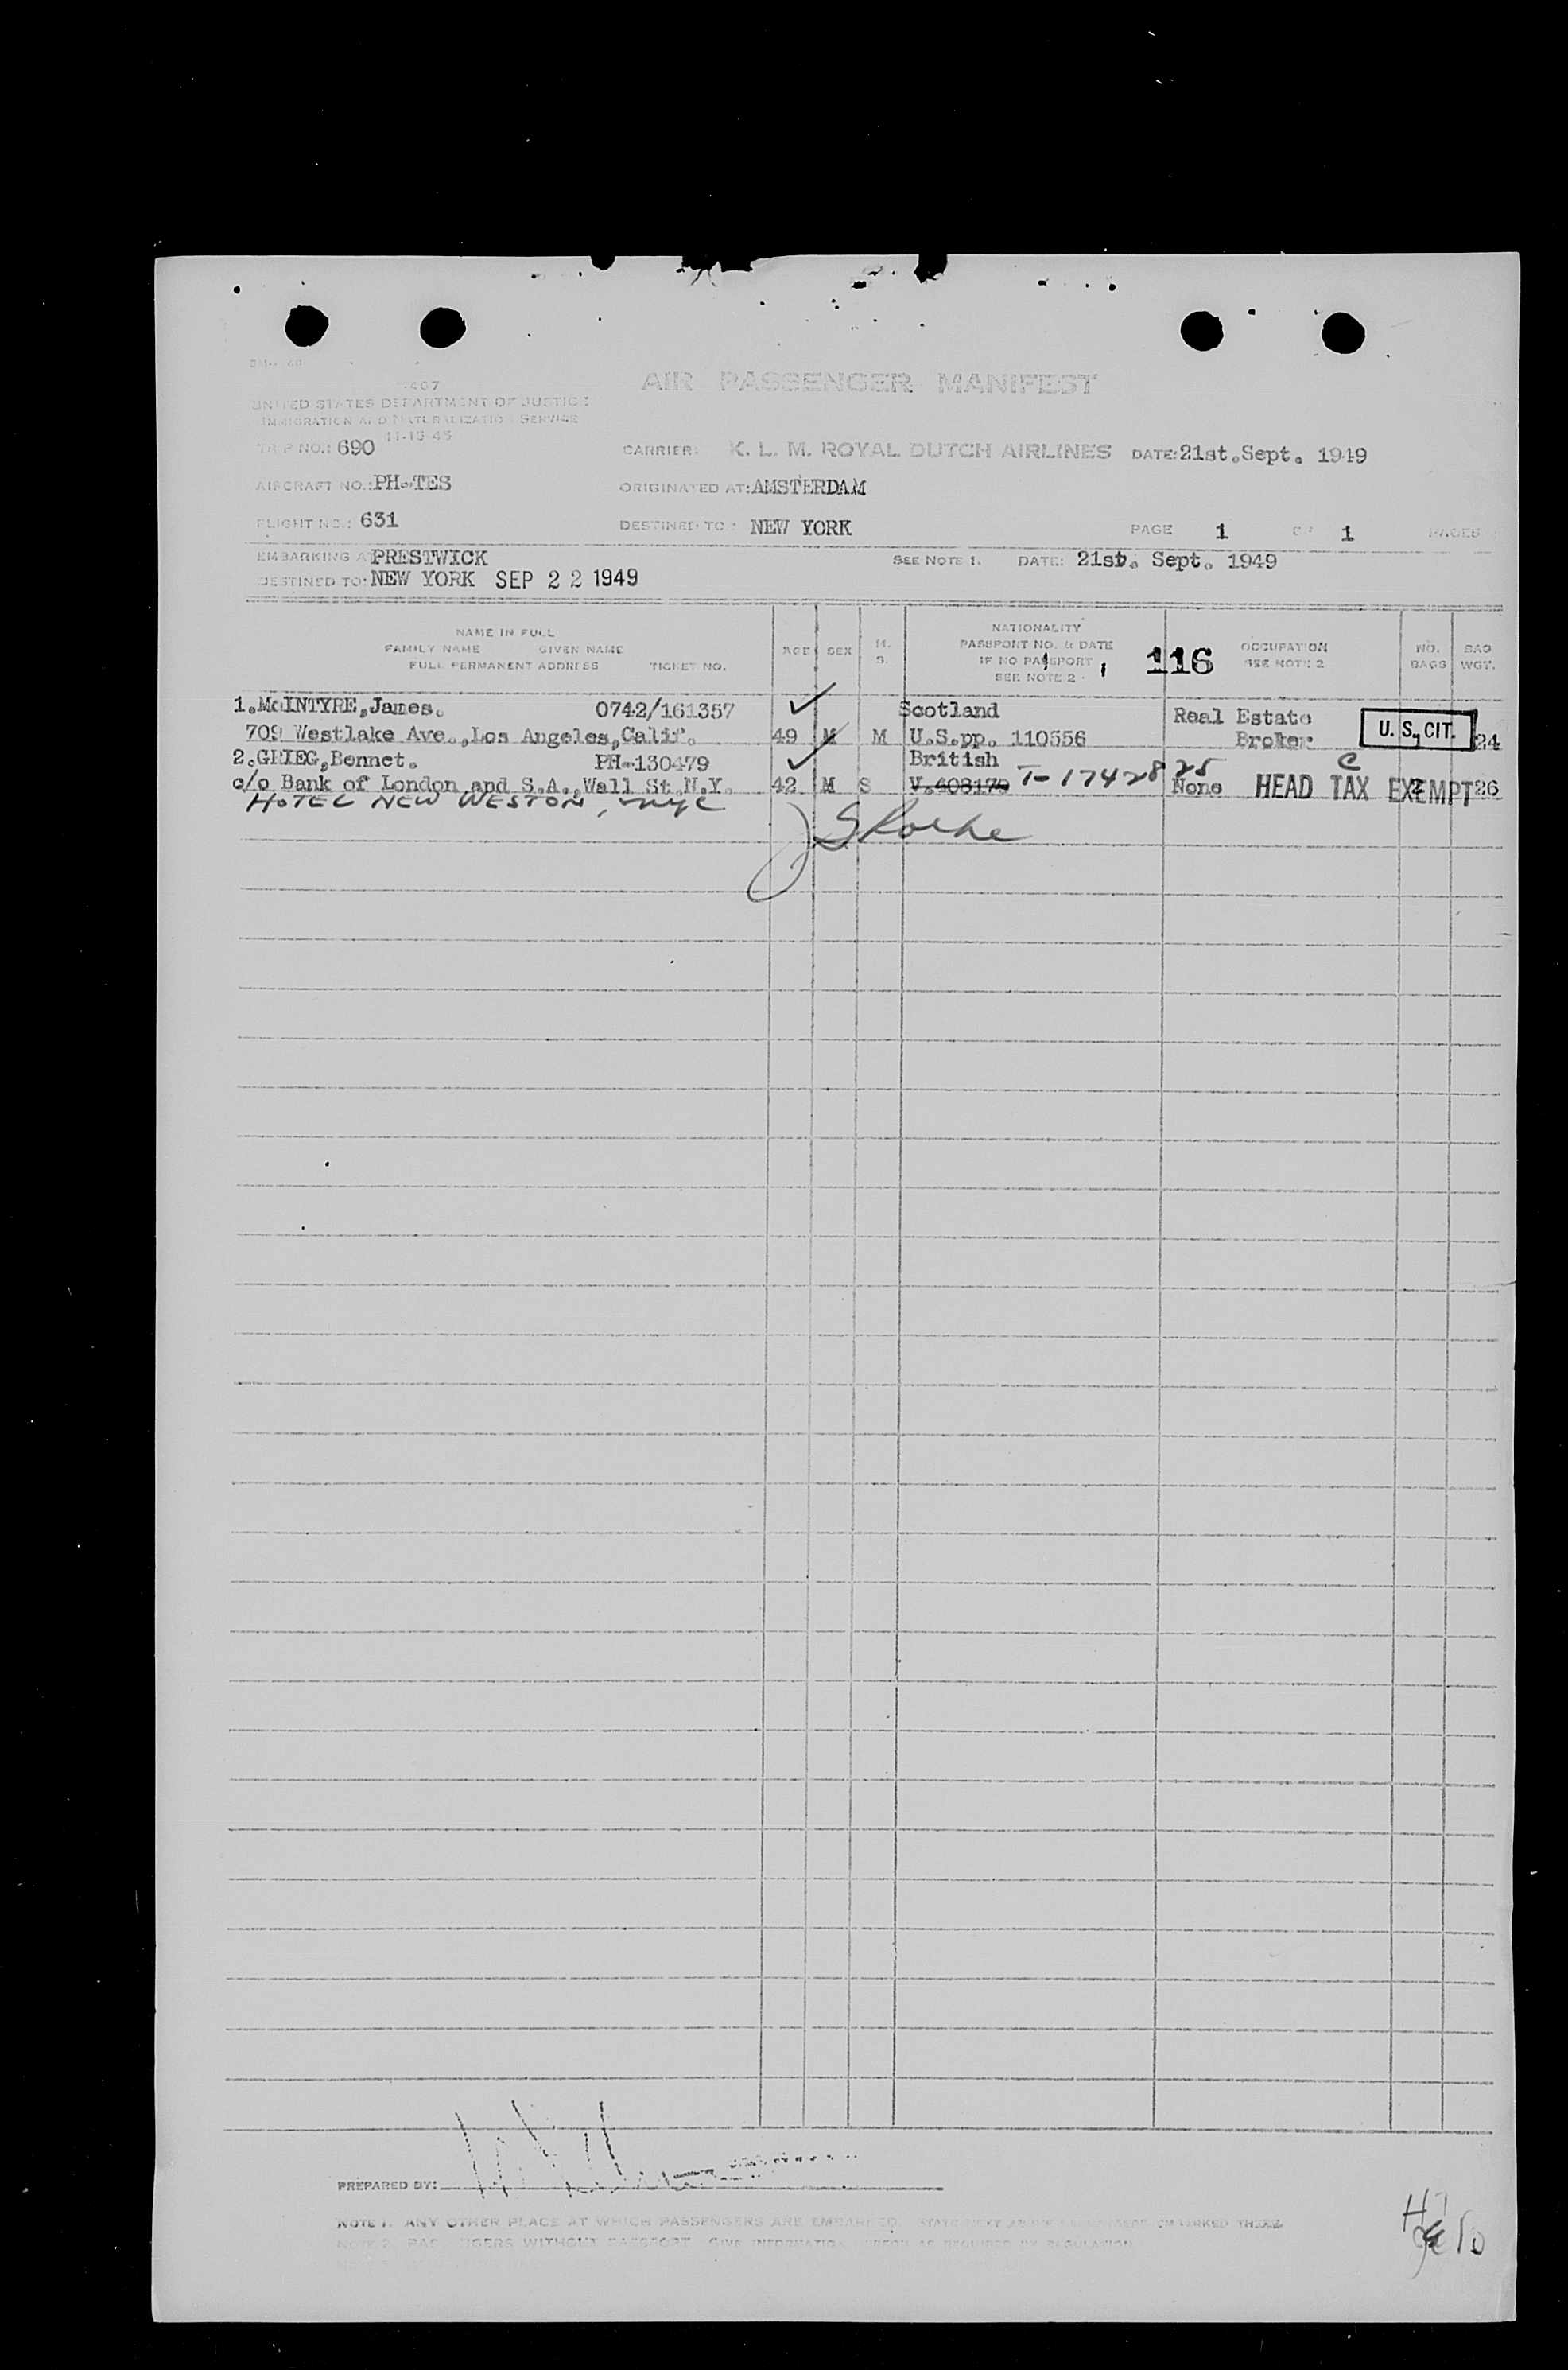 I-407
AIR PASSENGER MANIFEST
UNITED STATES DEPARTMENT OF JUSTICE
IMMIGRATION AND NATURALIZATION SERVICE
11-15-45
TRIP NO.: 690 CARRIER: K. L. M. ROYAL DUTCH AIRLINES DATE: 21st.Sept. 1949
AIRCRAFT NO.: PH-TES ORIGINATED AT: AMSTERDAM
FLIGHT NO.: 631 DESTINED TO: NEW YORK PAGE 1 OF 1 PAGES
EMBARKING AT PRESTWICK SEE NOTE 1. DATE: 21st. Sept. 1949
DESTINED TO: NEW YORK SEP 22 1949
NAME IN FULL
FAMILY NAME GIVEN NAME
FULL PERMANENT ADDRESS TICKET NO.
AGE SEX M. S.
NATIONALITY
PASSPORT NO. & DATE
IF NO PASSPORT
SEE NOTE 2
116
OCCUPATION
SEE NOTE 2
NO. BAGS
BAG WGT.
1.McINTYRE,James. 0742/161357 Scotland Real Estate
709 Westlake Ave.,Los Angeles,Calif. 49 M M U.S.pp. 110556 Broker U. S. CIT. 24
2.GRIEG,Bennet. PH-130479 British
c/o Bank of London and S.A.,Wall St.N.Y. 42 M S V.408170 T-1742825 None C HEAD TAX EXEMPT 26
HOTEL NEW WESTON, NYC
PREPARED BY:
NOTE 1. ANY OTHER PLACE AT WHICH PASSENGERS ARE EMBARKED